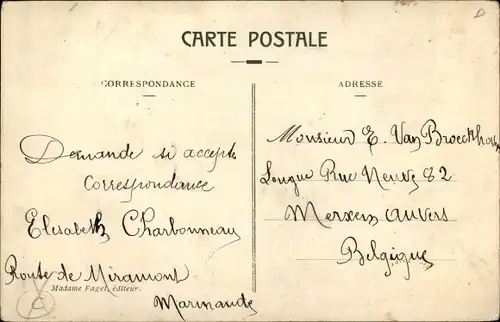 CARTE POSTALE
CORRESPONDANCE
Demande si accepte
Correspondance
Elisabeth Charbonneau
Route de Miramont
Madame Faget, éditeur.
Marmande
ADRESSE
Monsieur E. Van Broeckhoven
Longue Rue Neuve 82
Merxem Anvers
Belgique